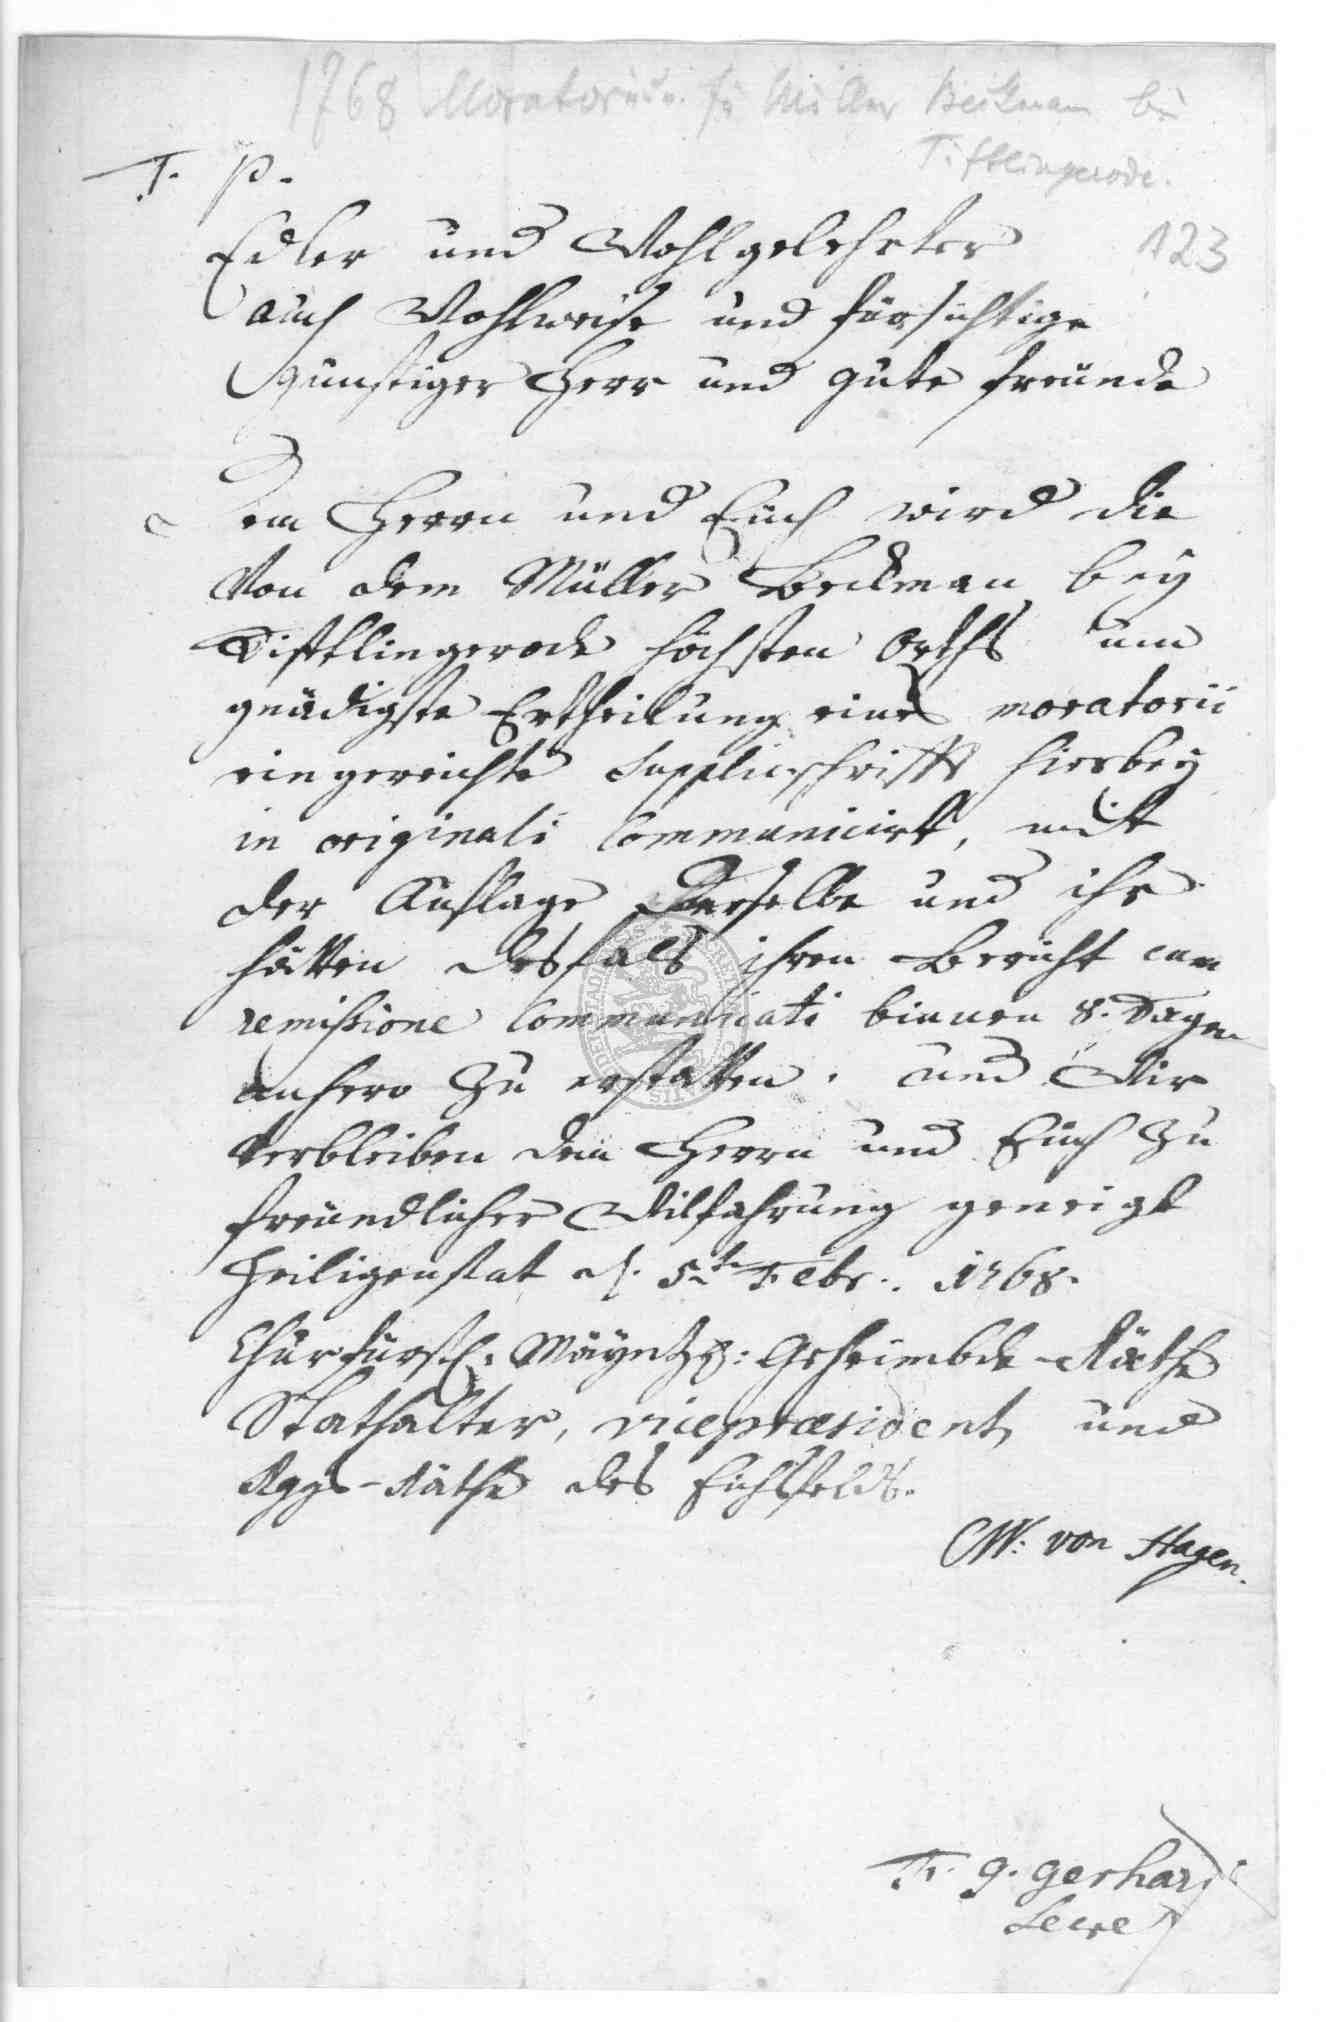 1768 Moratorium für Müller Beckman bei
Tiftlingerode.
123
T. P.
Edler und Wohlgelehrter
auch Wohlweise und fürsichtige
günstiger Herr und gute freünde
Dem Herrn und Eüch wird die
von dem Müller Beckman bey
Tistlingerode höchsten Orths um
gnädigste Ertheilung eines moratorii
eingereichte Supplicschrifft hierbey
in originali Communicirt, mit
der Auflage Derselbe und ihr
hätten desfals ihren Bericht cum
remissione Communicati binnen 8. Tagen
anhero zu erstatten. und Wir
verbleiben dem Herrn und Eüch zu
freündlicher Wilfahrung geneigt
Heiligenstat d. 5ten Febr. 1768.
Churfürstl. Mäyntz: Geheimbde-Räthe
Stathalter, vicepræsident, und
Rggs-Räthe des Eichsfelds.
CW: von Hagen.
gerhardi